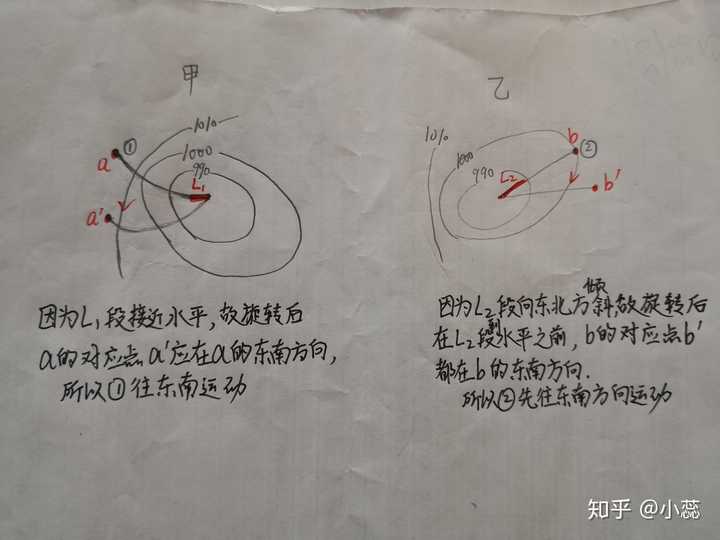 甲
乙
1010
1000
990
①
a
L₁
a'
1010
1000
990
L₂
b
②
b'
因为L₁段接近水平,故旋转后
a的对应点a'应在a的东南方向,
所以①往东南运动
因为L₂段向东北方倾斜,故旋转后
在L₂段到水平之前,b的对应点b'
都在b的东南方向.
所以②先往东南方向运动
知乎 @小蕊